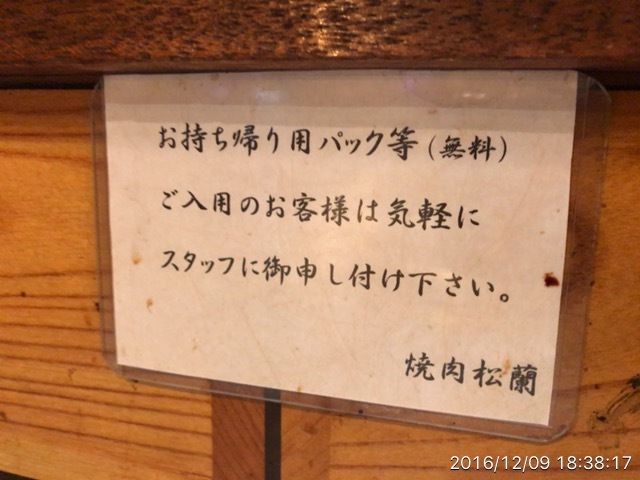 お持ち帰り用パック等(無料)
ご入用のお客様は気軽に
スタッフに御申し付け下さい。
焼肉松蘭
2016/12/09 18:38:17